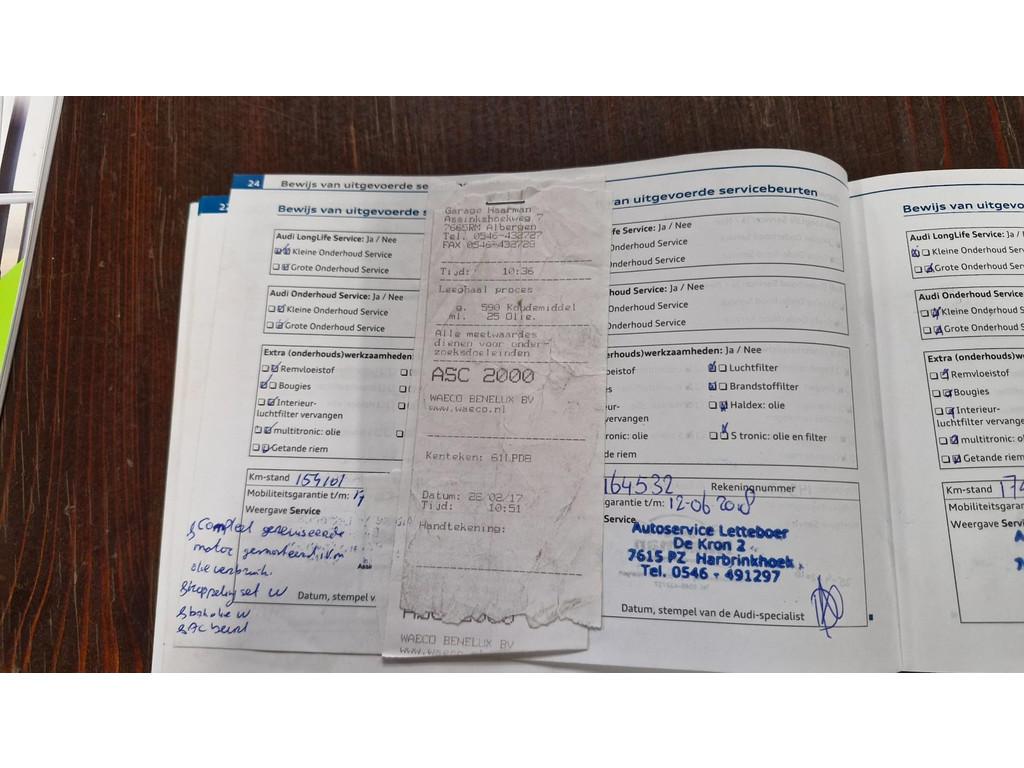 24 Bewijs van uitgevoerde se
Bewijs van uitgevoerde s
Audi LongLife Service: Ja / Nee
Kleine Onderhoud Service
Grote Onderhoud Service
Audi Onderhoud Service: Ja / Nee
Kleine Onderhoud Service
Grote Onderhoud Service
Extra (onderhouds)werkzaamheden:
Remvloeistof
Bougies
Interieur-
luchtfilter vervangen
multitronic: olie
Getande riem
Km-stand 154101
Mobiliteitsgarantie t/m:
Weergave Service
Compleet gereviseerde
motor gemonteerd i.v.m
olie verbruik.
Datum, stempel v
Garage Haarman
Assinkshoekweg 7
7665RM Albergen
Tel. 0546-432727
FAX 0546-432728
Tijd: 10:36
Leeghaal proces
g. 590 Koudemiddel
ml. 25 Olie.
Alle meetwaardes
dienen voor onder-
zoeksdoeleinden
ASC 2000
WAECO BENELUX BV
www.waeco.nl
Kenteken: 61LPD8
Datum: 28/02/17
Tijd: 10:51
Handtekening:
WAECO BENELUX BV
an uitgevoerde servicebeurten
fe Service: Ja / Nee
Onderhoud Service
Onderhoud Service
houd Service: Ja / Nee
Onderhoud Service
Onderhoud Service
erhouds)werkzaamheden: Ja / Nee
oeistof
ur-
vervangen
ronic: olie
riem
Luchtfilter
Brandstoffilter
Haldex: olie
S tronic: olie en filter
164532 Rekeningnummer
garantie t/m: 12-06 2018
Service
Autoservice Letteboer
De Kron 2
7615 PZ Harbrinkhoek
Tel. 0546 - 491297
Datum, stempel van de Audi-specialist
Bewijs van uitgevo
Audi LongLife Service: Ja
Kleine Onderhoud Service
Grote Onderhoud Service
Audi Onderhoud Service:
Kleine Onderhoud Service
Grote Onderhoud Service
Extra (onderhouds)werkz
Remvloeistof
Bougies
Interieur-
luchtfilter vervangen
multitronic: olie
Getande riem
Km-stand 17
Mobiliteitsgarantie t/m
Weergave Service